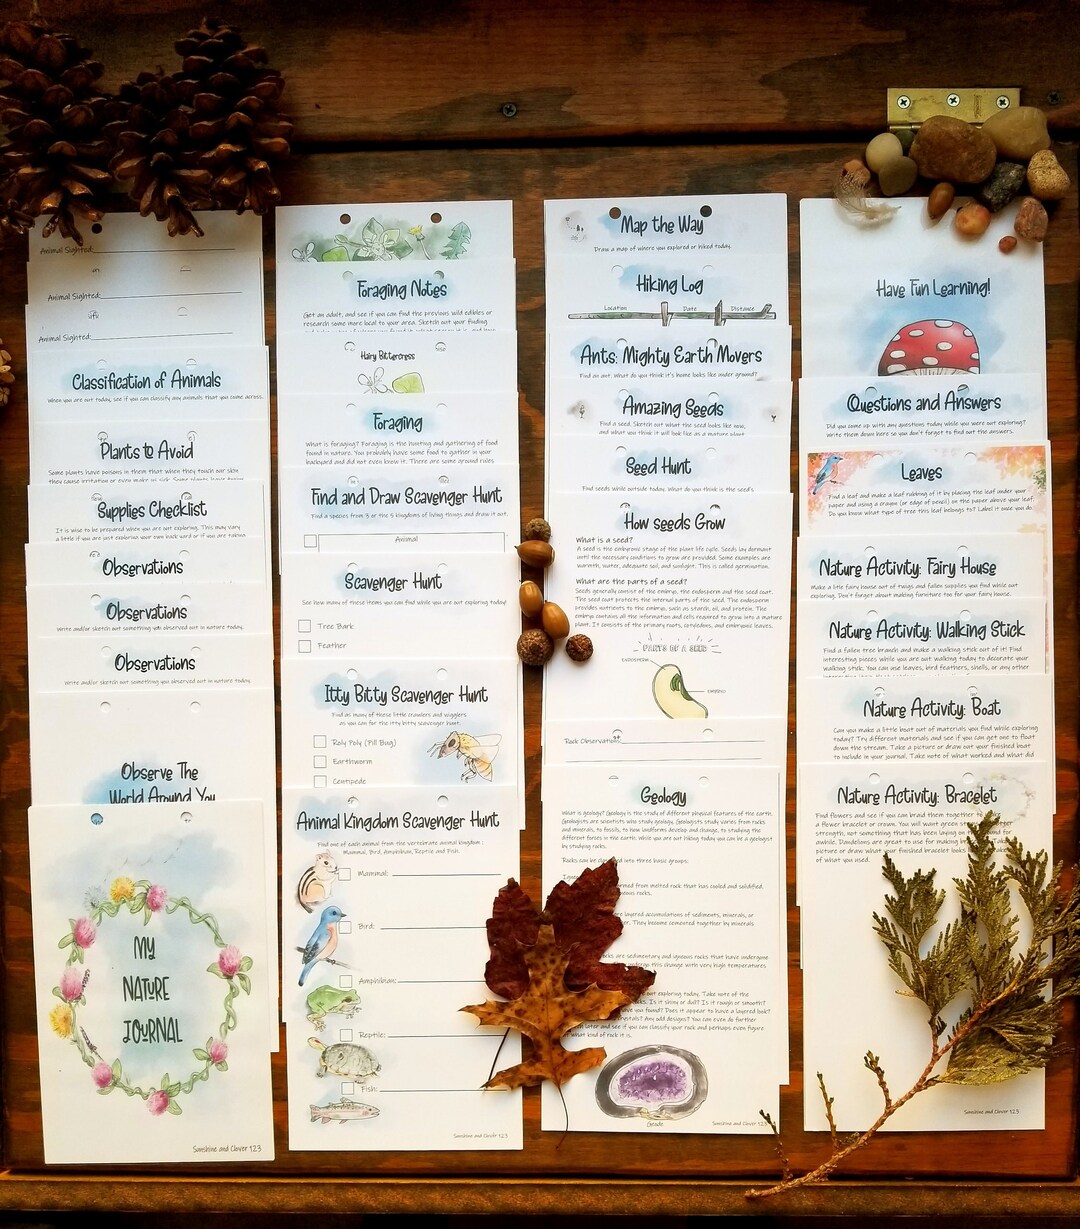 Animal Sighted:
Animal Sighted:
Animal Sighted:
Classification of Animals
When you are out today, see if you can classify any animals that you come across.
Plants to Avoid
Some plants have poisons in them that when they touch our skin
they cause irritation or even make us sick. Some plants have
Supplies Checklist
It is wise to be prepared when you are out exploring. This may vary
a little if you are just exploring your own backyard or if you are taking
Observations
Observations
Write and/or sketch out something you observed out in nature today.
Observations
Write and/or sketch out something you observed out in nature today.
Observe The
World Around You
My
NATURE
JOURNAL
Sunshine and Clover 123
Foraging Notes
Get an adult, and see if you can find the previous wild edibles or
research some more local to your area. Sketch out your finding
Hairy Bittercress
Foraging
What is foraging? Foraging is the hunting and gathering of food
found in nature. You probably have some food to gather in your
backyard and did not even know it. There are some ground rules
Find and Draw Scavenger Hunt
Find a species from 3 or the 5 kingdoms of living things and draw it out.
Animal
Scavenger Hunt
See how many of these items you can find while you are out exploring today!
Tree Bark
Feather
Itty Bitty Scavenger Hunt
Find as many of these little crawlers and wigglers
as you can for the itty bitty scavenger hunt.
Roly Poly (Pill Bug)
Earthworm
Centipede
Animal Kingdom Scavenger Hunt
Find one of each animal from the vertebrate animal kingdom:
Mammal, Bird, Amphibian, Reptile and Fish.
Mammal:
Bird:
Amphibian:
Reptile:
Fish:
Sunshine and Clover 123
Map the Way
Draw a map of where you explored or hiked today.
Hiking Log
Location Date Distance
Ants: Mighty Earth Movers
Find an ant. What do you think it's home looks like under ground?
Amazing Seeds
Find a seed. Sketch out what the seed looks like now,
and what you think it will look like as a mature plant.
Seed Hunt
Find seeds while outside today. What do you think is the seed's
How seeds Grow
What is a seed?
A seed is the embryonic stage of the plant life cycle. Seeds lay dormant
until the necessary conditions to grow are provided. Some examples are
warmth, water, adequate soil, and sunlight. This is called germination.
What are the parts of a seed?
Seeds generally consist of the embryo, the endosperm and the seed coat.
The seed coat protects the internal parts of the seed. The endosperm
provides nutrients to the embryo, such as starch, oil, and protein. The
embryo contains all the information and cells required to grow into a mature
plant. It consists of the primary roots, cotyledons, and embryonic leaves.
PARTS OF A SEED
ENDOSPERM
EMBRYO
Rock Observation:
Geology
What is geology? Geology is the study of different physical features of the earth.
Geologists are scientists who study geology. Geologists study various from rocks
and minerals, to fossils, to how landforms develop and change, to studying the
different forces in the earth. While you are out hiking today you can be a geologist
by studying rocks.
Rocks can be classified into three basic groups:
formed from melted rock that has cooled and solidified.
rocks.
are layered accumulations of sediments, minerals, or
They become cemented together by minerals
rocks are sedimentary and igneous rocks that have undergone
this change with very high temperatures
out exploring today. Take note of the
Is it shiny or dull? Is it rough or smooth?
have you found? Does it appear to have a layered look?
crystals? Any odd designs? You can even do further
later and see if you can classify your rock and perhaps even figure
what kind of rock it is.
Geode
Sunshine and Clover 123
Have Fun Learning!
Questions and Answers
Did you come up with any questions today while you were out exploring?
Write them down here so you don't forget to find out the answers.
Leaves
Find a leaf and make a leaf rubbing of it by placing the leaf under your
paper and using a crayon (or edge of pencil) on the paper above your leaf.
Do you know what type of tree this leaf belongs to? Label it once you do.
Nature Activity: Fairy House
Make a little fairy house out of twigs and fallen supplies you find while out
exploring. Don't forget about making furniture too for your fairy house.
Nature Activity: Walking Stick
Find a fallen tree branch and make a walking stick out of it! Find
interesting pieces while you are out walking today to decorate your
walking stick. You can use leaves, bird feathers, shells, or any other
Nature Activity: Boat
Can you make a little boat out of materials you find while exploring
today? Try different materials and see if you can get one to float
down the stream. Take a picture or draw out your finished boat
to include in your journal. Take note of what worked and what did
Nature Activity: Bracelet
Find flowers and see if you can braid them together to
a flower bracelet or crown. You will want green for
strength, not something that has been laying on for
awhile. Dandelions are great to use for making Take
picture or draw what your finished bracelet looks
of what you used.
Sunshine and Clover 123